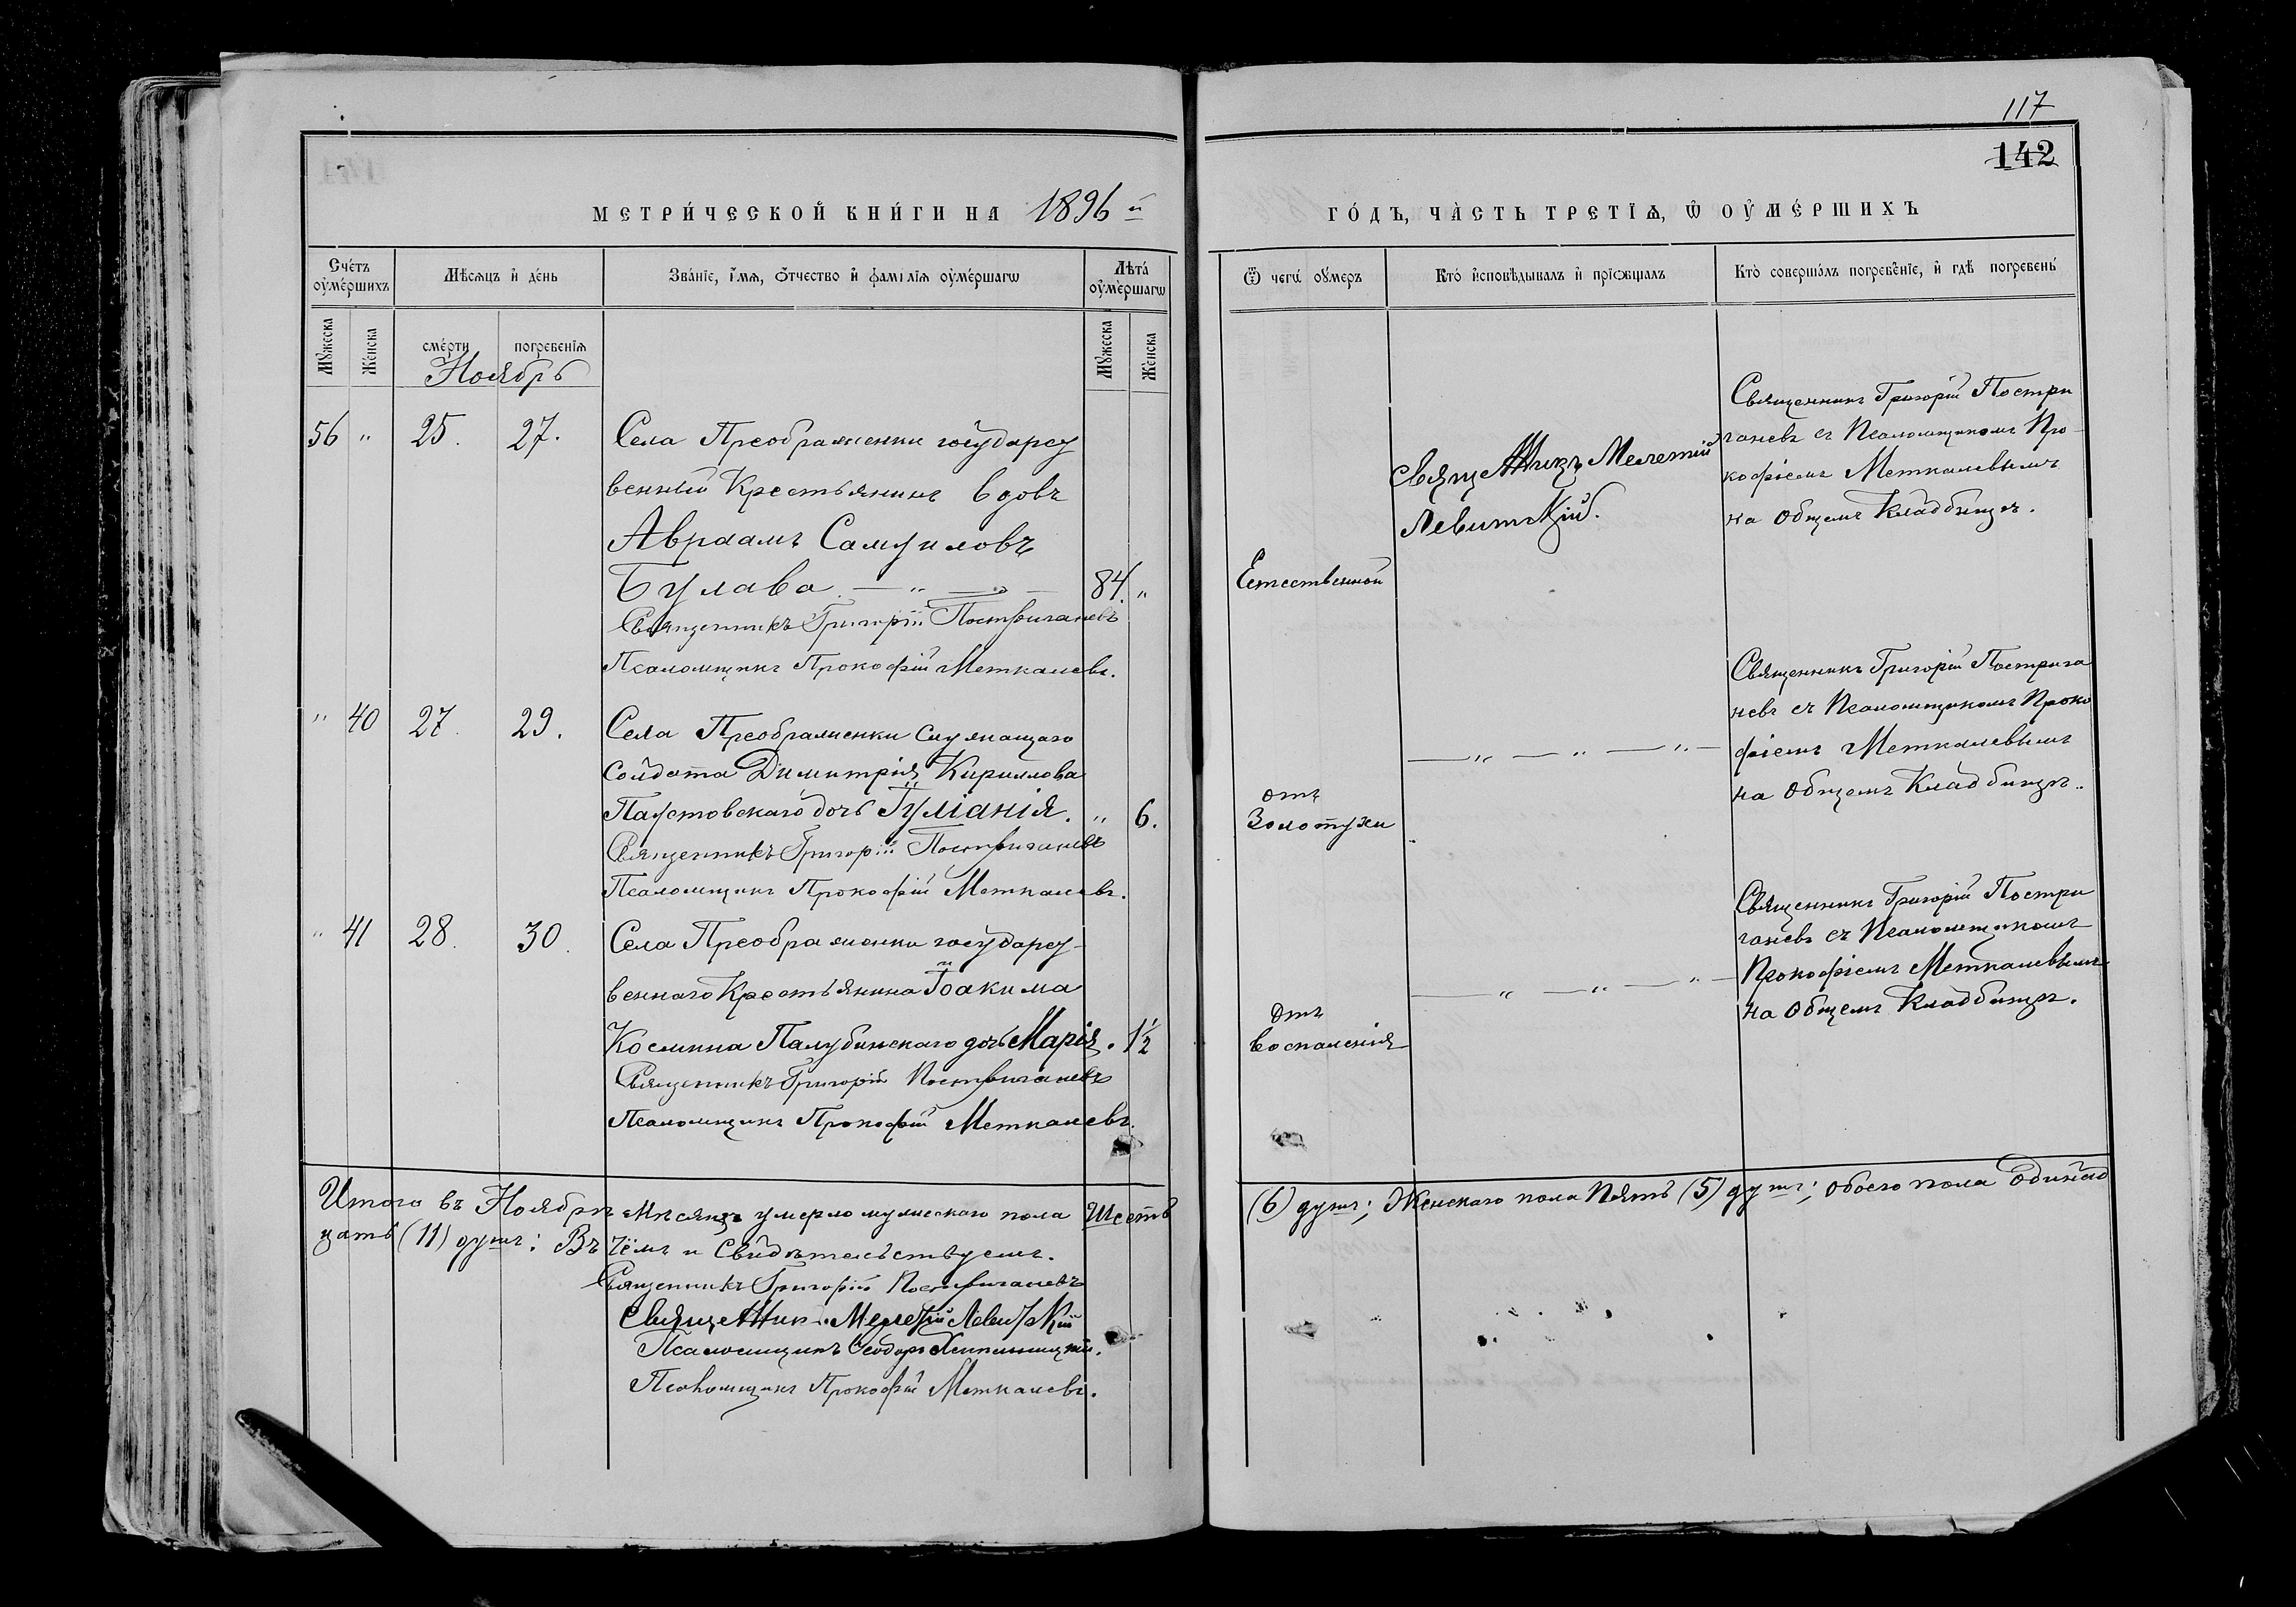 117
142
МЕТРИ́ЧЕСКОЙ КНИ́ГИ НА 1896 й
ГО́ДЪ, ЧА̀СТЬ ТРЕТІѦ, Ѿ ОУ҆МЕ́РШИХЪ
Сче́тъ оу҆ме́ршихъ
Мѣсѧцъ и҆ де́нь
Зва́нїе, и҆́мѧ, ѻ҆́тчество и҆ фамилїѧ оу҆ме́ршагѡ
Лѣта̀ оу҆ме́ршагѡ
Ѿ чегѡ̀ оу҆́меръ
Кто̀ и҆сповѣ́дывалъ и҆ прїѡбща́лъ
Кто̀ соверша́лъ погребе́нїе, и҆ гдѣ̀ погребены̀
Мꙋ́жеска
Же́нска
сме́рти
погребенїѧ
Мꙋ́жеска
Же́нска
Ноябрь
56 " 25. 27. Села Преображенки государст
венный Крестьянинъ вдовъ
Авраамъ Самуиловъ
Булава. — " — " — 84. "
Священникъ Григорій Постригачевъ
Псаломщикъ Прокофій Меткалевъ.
Естественной
Священникъ Мелетій
Левитскій.
Священникъ Григорій Постри
гачевъ съ Псаломщикомъ Про
кофіемъ Меткалевымъ
на общемъ Кладбищѣ.
" 40 27. 29. Села Преображенки служащаго
солдата Димитрія Кириллова
Паустовскаго дочь Іуліанія. " 6.
Священникъ Григорій Постригачевъ
Псаломщикъ Прокофій Меткалевъ.
отъ
Золотухи
— " — " — " —
Священникъ Григорій Пострига
чевъ съ Псаломщикомъ Проко
фіемъ Меткалевымъ
на общемъ Кладбищѣ.
" 41 28. 30. Села Преображенки государст-
веннаго Крестьянина Іоакима
Косьмина Палубинскаго дочь Марія. 1½
Священникъ Григорій Постригачевъ
Псаломщикъ Прокофій Меткалевъ.
отъ
воспаленія
— " — " — " —
Священникъ Григорій Постри
гачевъ съ Псаломщикомъ
Прокофіемъ Меткалевымъ
на общемъ Кладбищѣ.
Итого въ Ноябрѣ мѣсяцѣ умерло мужескаго пола Шесть (6) душъ; Женскаго пола Пять (5) душъ; обоего пола Одинад
цать (11) душъ: Въ чёмъ и Свидѣтельствуемъ.
Священникъ Григорій Постригачевъ
Священникъ Мелетій Левитскій
Псаломщикъ Ѳеодоръ
Псаломщикъ Прокофій Меткалевъ.